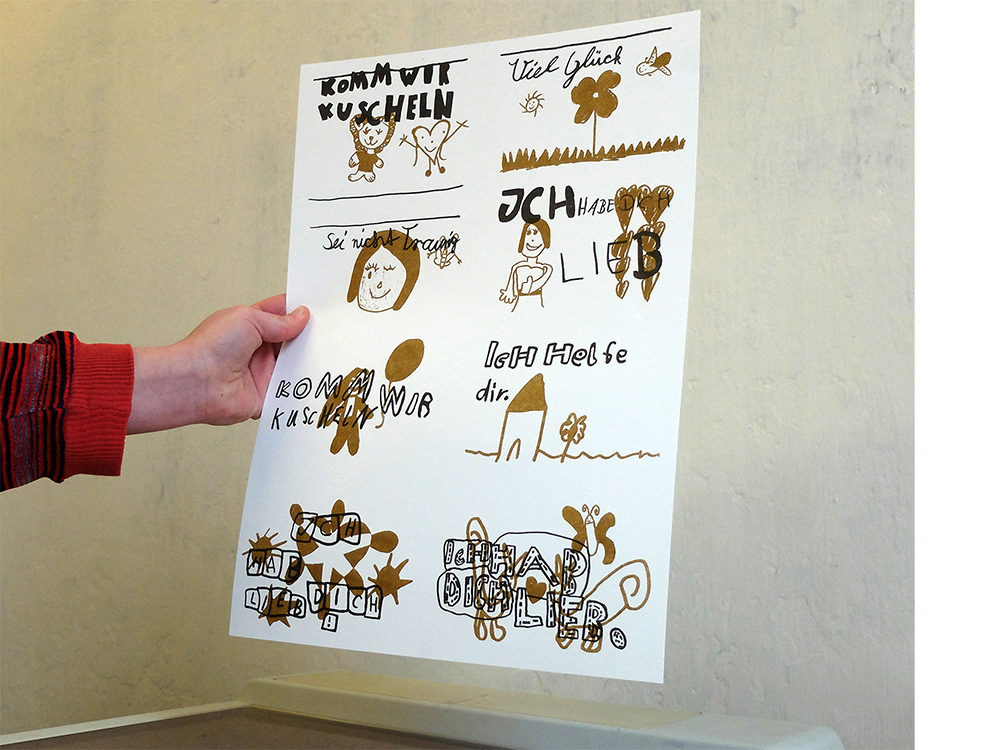 KOMM WIR
KUSCHELN
Viel Glück
Sei nicht traurig
JCH HABE DICH
LIEB
KOMM WIR
KUSCHELN
IcH Helfe
dir.
JCH
HAB
LIEB DICH
!
IcH HAB
DICH LIEB.